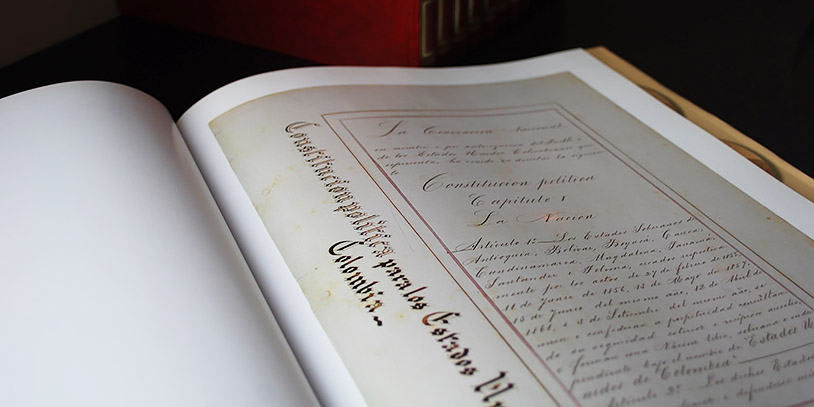 Constitución política para los Estados Un
Colombia.
La Convencion Nacional
en nombre i por autorizacion del Pueblo i
de los Estados Unidos Colombianos que
representa, ha venido en decretar la siguien-
te
Constitucion política
Capitulo 1
La Nacion
Articulo 1º Los Estados Soberanos de
Antioquia, Bolívar, Boyacá, Cauca,
Cundinamarca, Magdalena, Panamá,
Santander i Tolima, creados respectiva-
mente por los actos de 27 de febrero de 1855,
11 de Junio de 1856, 13 de Mayo de 1857,
15 de Junio del mismo año, 12 de Abril de
1861, i 3 de Setiembre del mismo año, se
unen i confederan a perpetuidad consultan-
do su seguridad exterior i recíproco auxilio,
i forman una Nacion libre, soberana e inde-
pendiente, bajo el nombre de "Estados U
nidos de Colombia"
Articulo 2º Los dichos Estados